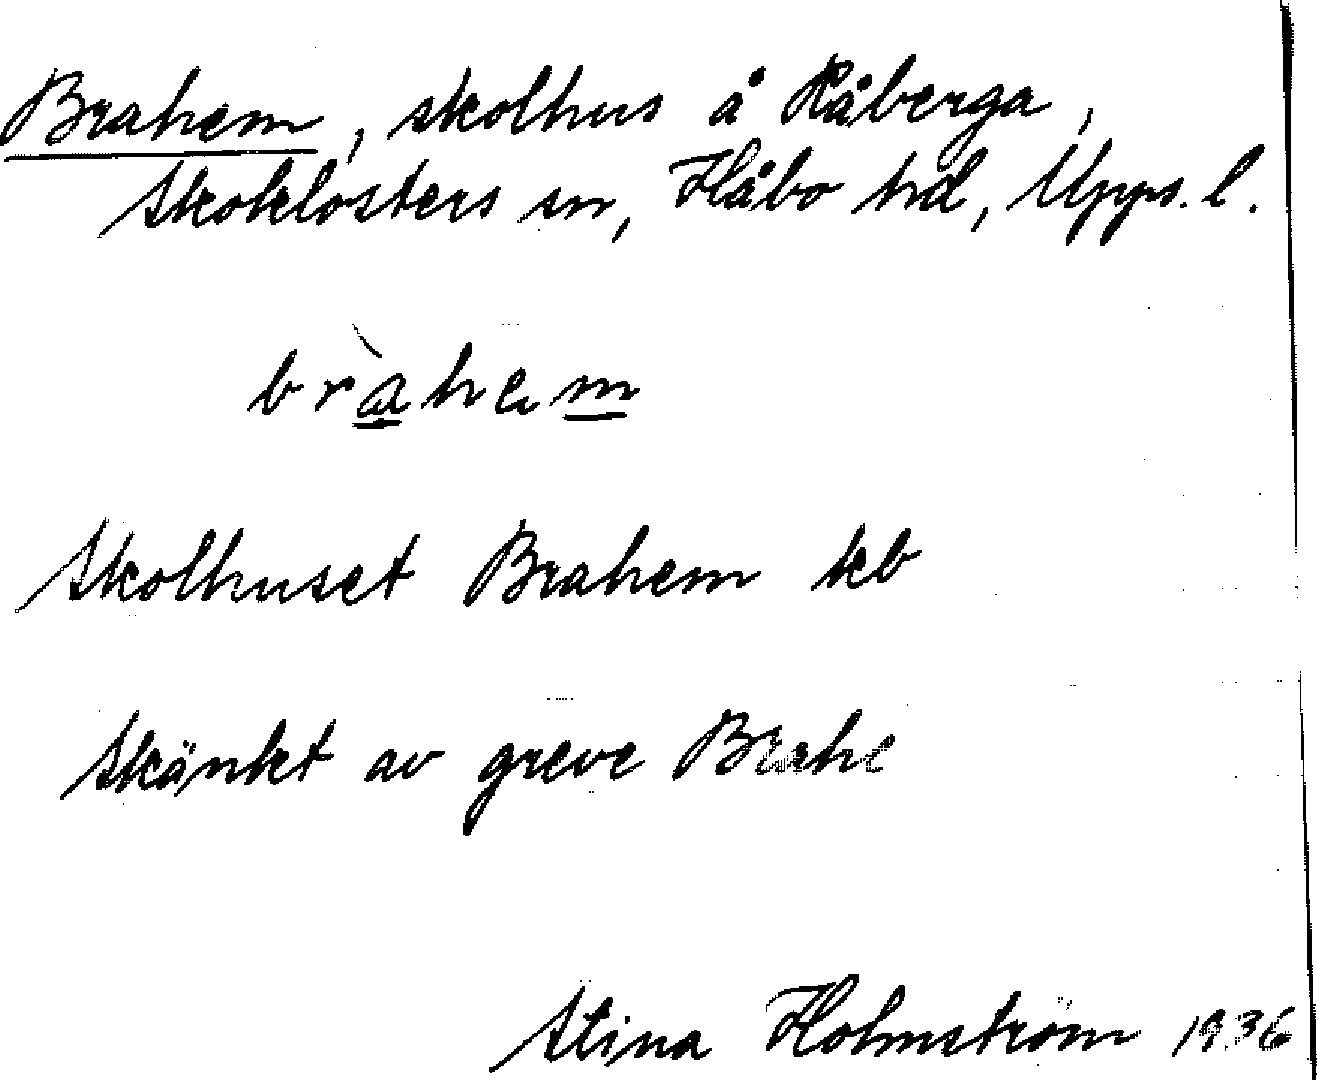 Brahem, skolhus å Råberga,
Skoklosters sn, Håbo hd, Upps. l.
bràhem
Skolhuset Brahem kb
Skänkt av greve Brahe
Stina Holmström 1936